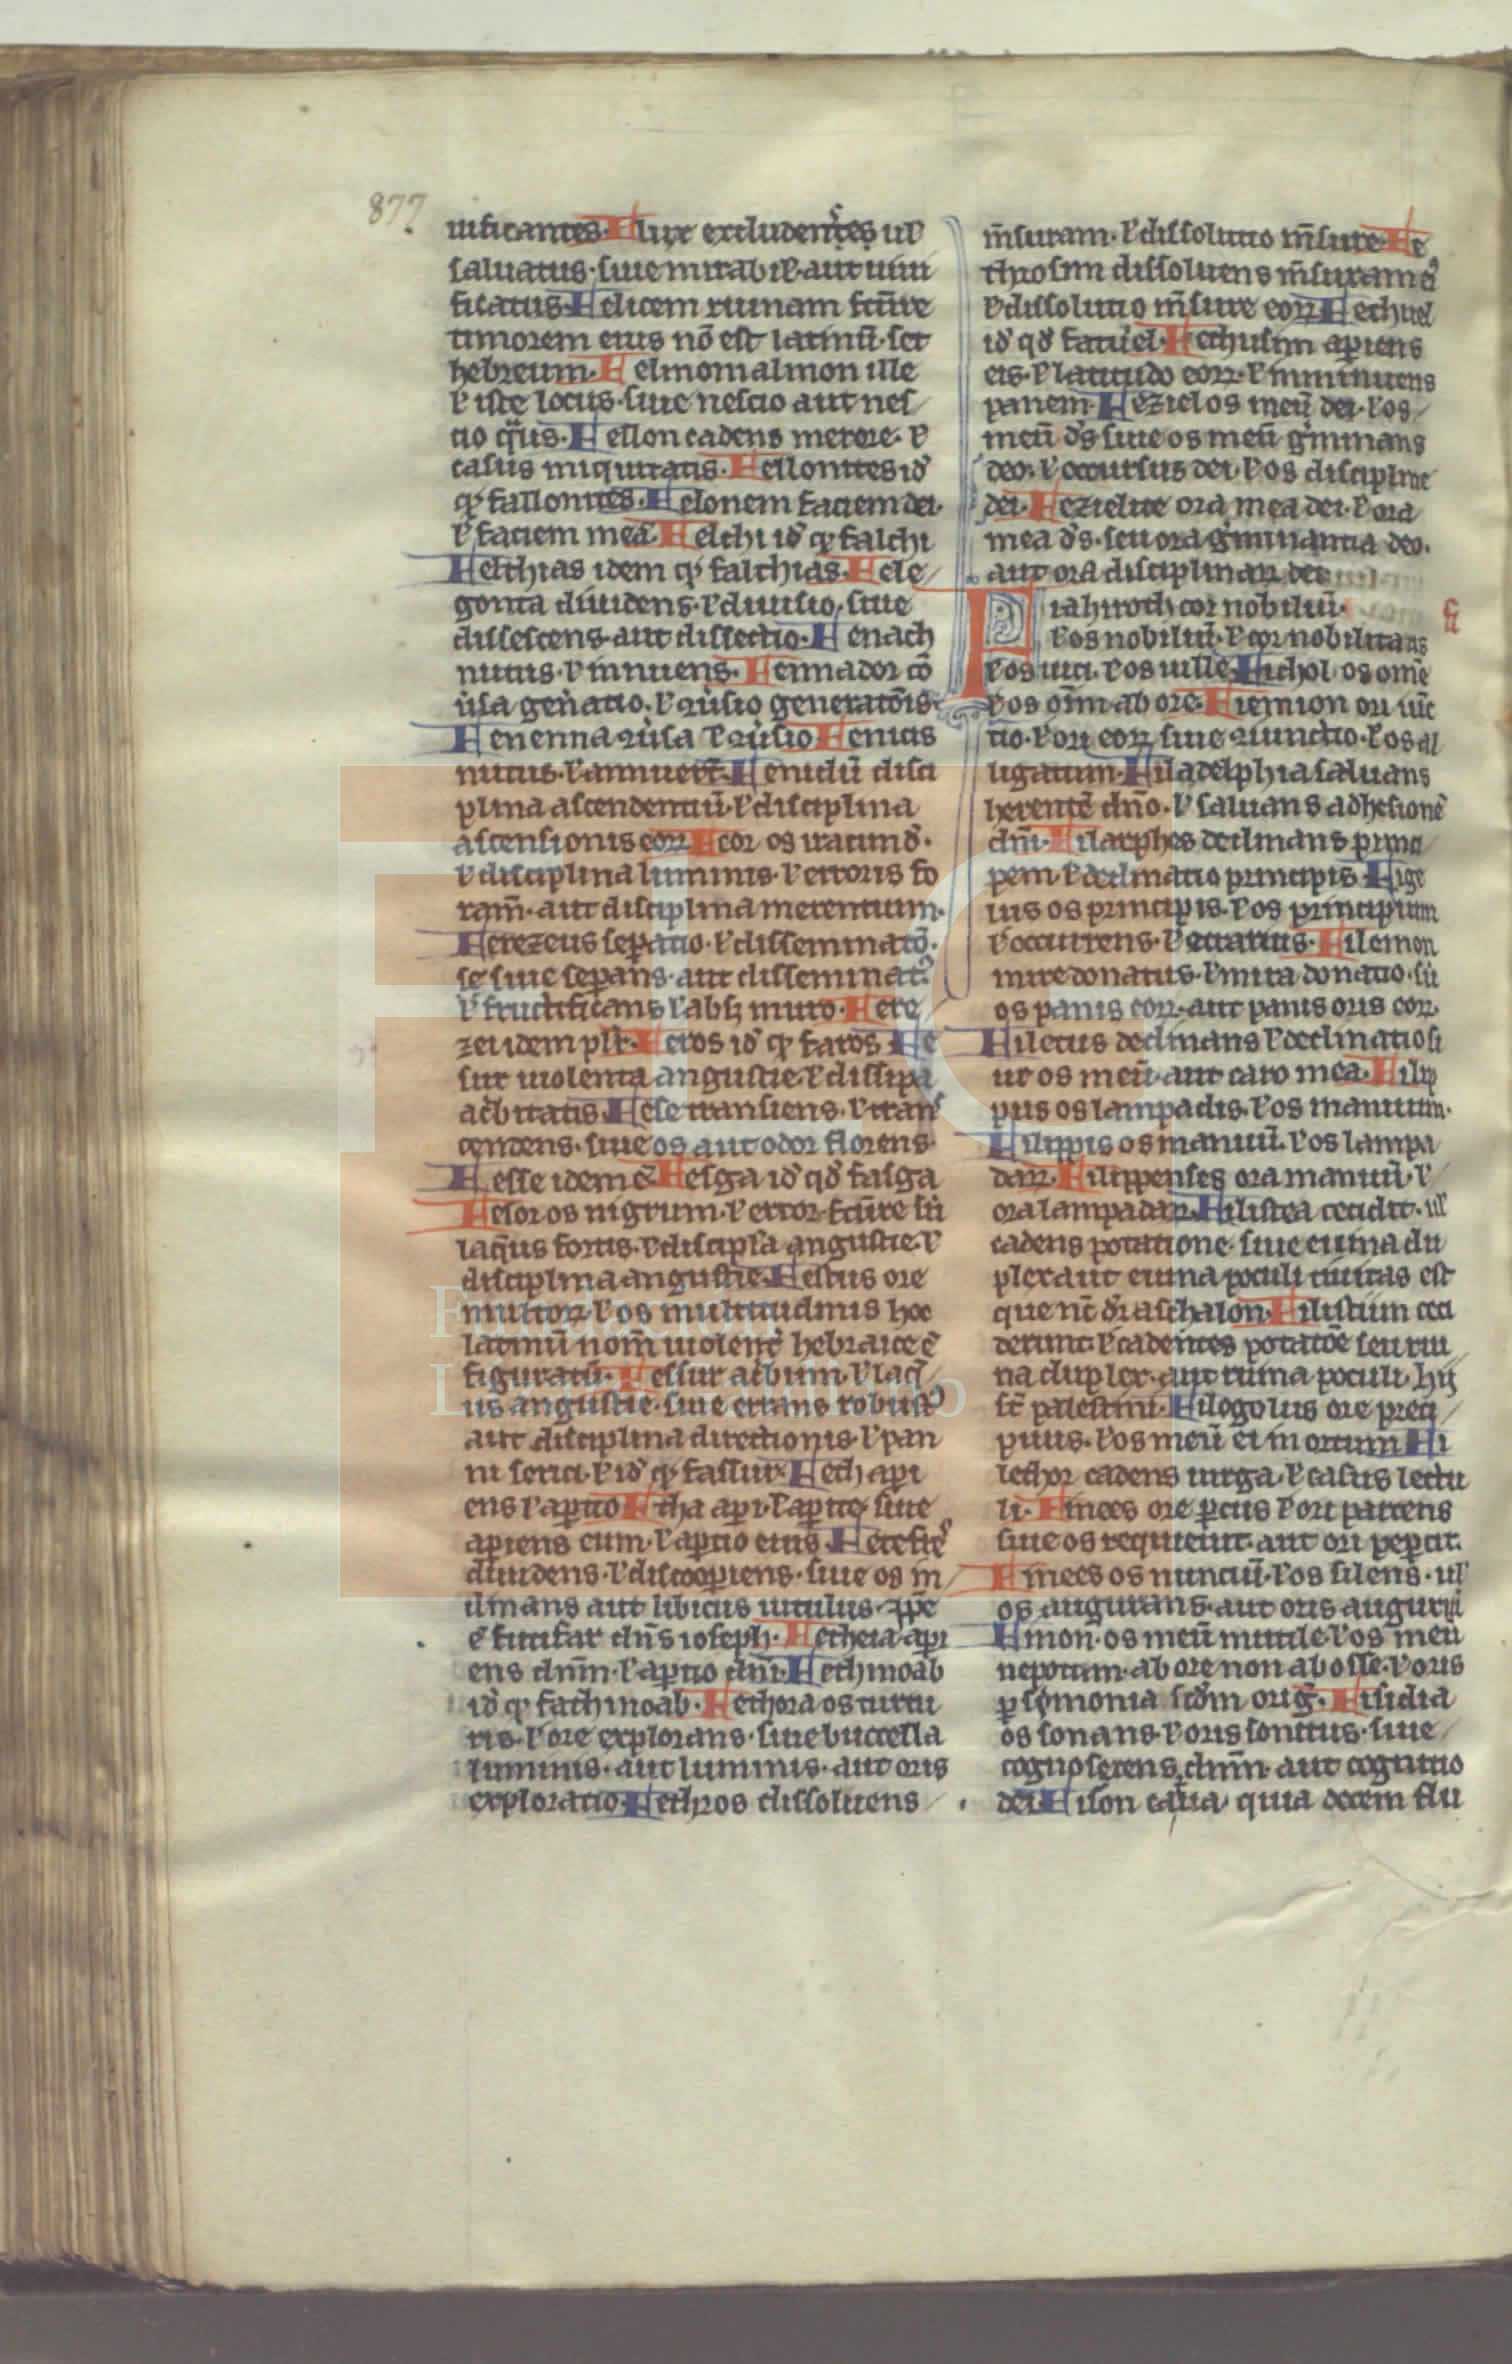 877
uificantes. Elux excludentes ul'
saluatus. siue mirabil'. aut uiui
ficatus. Felicem ruinam fcūire
timorem eius nō est latinū. set
hebreum. Felmoni almon ille
ł iste locus. siue nescio aut nes/
cio q̄us. Fellon cadens merore. ł
casus iniquitatis. Fellonites id'
qđ fallonites. Felonem faciem dei.
ł faciem meā. Felchi id' qđ falchi
Felthias idem qđ falthias. Fele/
gonta diuidens. ł diuisio. siue
dissescens. aut dissectio. Fenach
nutus. ł innuens. Fennador cō
ūsa gen̄atio. ł 9ūsio generatōis.
Fenenna 9ūsa ł 9ūsio Fenicis
nutus. ł annuens. Fenidū disci
plina ascendentiū. ł disciplina
ascensionis eorr. Feor os iracund'.
ł disciplina luminis. ł erroris fo
ram̄. aut disciplina merentium.
Ferezeus sep̄atio. ł disseminatō.
se siue sep̄ans. aut disseminat.
ł fructificans ł absq; muro. Fere/
zei idem plr. Feros id' qđ faros Fe
sur uiolenta angustie. ł dissipa
acb̄itatis. Fese transiens. ł trans
cendens. siue os aut odor florens.
Fesse idem ē Fesga id' qđ fasga
Fesor os nigrum. ł error fcūire sū
laq̄us fortis. ł discipl'a angustie. ł
disciplina angustie. Festus ore
multorr. ł os multitudinis hoc
latinū nom̄ uiolent' hebraice ē
figuratū. Fessur acb̄um. ł laq̄
us angustie. siue errans robust'
aut disciplina directionis. ł pan
ni serici. ł id' qđ fassur. Feth api
ens ł ap̄tio Fetha api. ł ap̄tio. siue
apiens eum. ł ap̄tio eius. Fetefre
diuidens. ł discoop̄iens. siue os in/
ilinans aut libicus uitulus. ip̄e
ē futifar dn̄s ioseph. Fetheia api
ens dnm̄. ł ap̄tio dn̄i. Fethmoab
id' qđ fathmoab. Fethora os turtu
ris. ł ore explorans. siue buccella
luminis. aut luminis. aut oris
exploratio. Fethros dissoluens /
m̄suram. ł dissolutio m̄sure. Fe
throsim dissoluens m̄suram eo
ł dissolutio m̄sure eorr. Fethuel
id' qđ fatuel. Fethusim apiens
eis. ł latitudo eorr. ł inminuens
panem. Feziel os meū dei. ł os/
meū ds siue os meū gminans
deo. ł occursus dei. ł os discipline
dei. Fezielite ora mea dei. ł ora
mea ds. seu ora gminantia deo.
aut ora disciplinarr dei
fi
Fiahiroth cor nobiliū.
ł os nobiliū. ł cor nobilitans
ł os uici. ł os uille. Fichol. os omē
ł os oīm. ab ore. Fiemion ori iūc
tio. ł ori eorr siue 9iunctio. ł os al
ligatum. Filadelphia saluans
herentē dn̄o. ł saluans adhesionē
dn̄i. Filarphes declinans princi
pem. ł declinatio principis. Fige
lus os principis. ł os principum
ł occurrens. ł Filemon
mire donatus. ł mira donatio. sū
os panis eorr. aut panis oris eorr.
Filetus declinans ł declinatio si
ue os meū. aut caro mea. Filip
pus os lampadis. ł os manuum.
Filippis os manuū. ł os lampa
darr. Filippenses ora manuū. ł/
ora lampadarr. Filistea cecidit. ul'
cadens potatione. siue ruina du
plex aut ruina poculi ciuitas est
que nc̄ dr̄ aschalon. Filistiim ceci
derunt. ł cadentes potatōe seu rui
na duplex. aut ruina poculi. hij
st̄ palestini. Filogolus ore preci/
puus. ł os meū ei mortuum Fi
lethor cadens uirga. ł casus lectu
li. Finees ore pcus ł ori parcens
siue os requieuit. aut ori pepcit.
Finees os nunciū. ł os silens. ul'
os augurans. aut oris augurii
Finon. os meū mutile. ł os meū
nepotum. ab ore non ab osse. ł oris
psimonia scdm orig. Fisidia
os sonans. ł oris sonitus. siue/
cognoscens dnm̄. aut cognitio
dei. Fison cat̄ua quia decem flu